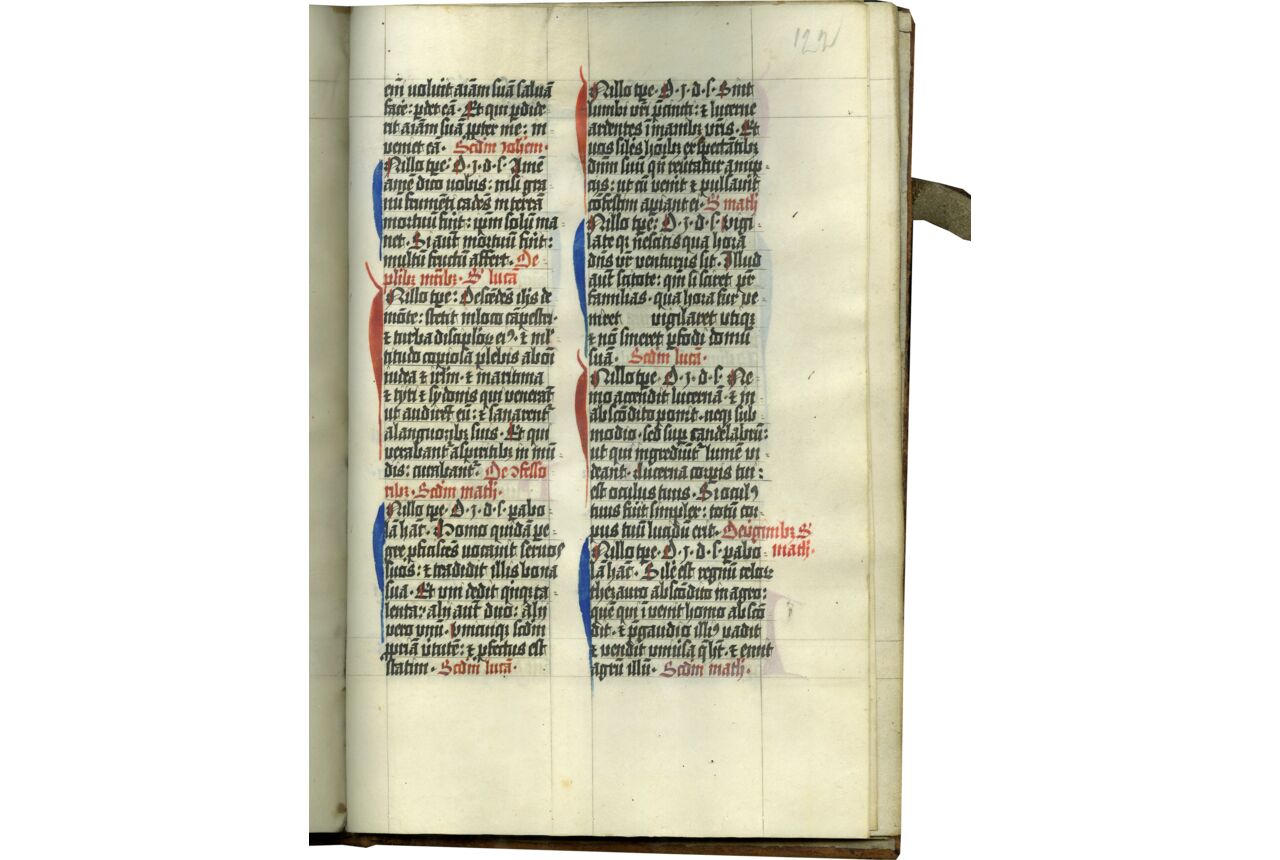 122
em̄ voluit aīam suā salvā
facē: p̱det eā. Et qui p̱dide
rit aīam suā p̱pter me: in
veniet eā. Scdm̄ Johem̄.
INillo tp̄e. D. J. d. s. Amē
amē dico vobis: nisi gra
nū frumēti cadēs in terrā
mortuū fūit: ip̄m solū ma
net. Si aūt mortuū fūit:
multū fructū affert. De
plībꝫ mr̄ibꝫ. S̄ lucā
INillo tp̄e: Descēdēs ih̄s de
mōte: stetit ī loco cāpestri.
⁊ turba disciploꝝ eiꝰ. ⁊ ml̄
titudo copiosa plebis ab oī
iudea ⁊ irl̄m. ⁊ maritima
⁊ tyri ⁊ sydonis qui venerāt
ut audirēt eū: ⁊ sanarent᷑
a languoribꝫ suis. Et qui
vexabant᷑ a sp̄iritibꝫ in mū
dis: curabant᷑. De ꝯfesso
ribꝫ. Scdm̄ math̄.
INillo tp̄e. D. J. d. s. pabo
lā hāc. Homo quidā pe
gre p̱ficiscēs vocavit servos
suos: ⁊ tradidit illis bona
sua. Et vni dedit qn̄qꝫ ta
lenta: alij aūt duo: alij
vero vnū. vnicuiqꝫ scdm̄
pp̄riā v̓tutē: ⁊ p̱fectus est
statim. Scdm̄ lucā.
INillo tp̄e. D. J. d. s. Sint
lumbi vr̄i p̱cincti: ⁊ lucerne
ardentes ī manibꝫ vr̄is. Et
vos siles hoībꝫ exspectātibꝫ
dn̄m suū qn̄ reūtatur a nup
ciis: ut cū venit ⁊ pulsavit
cōfestim apiant ei. S̄ math̄
INillo tp̄e: D. J. d. s. Vigi
late qꝫ nescitis qua hora
dn̄s vr̄ venturus sit. Illud
aūt scitote: qm̄ si sciret pr̄
familias. qua hora fur ve
niret vigilaret vtiqꝫ
⁊ nō sineret p̱fodi domū
suā. Scdm̄ lucā.
INillo tp̄e. D. J. d. s. Ne
mo accendit lucernā. ⁊ in
abscōdito ponit. neqꝫ sub
modio. sed sup̱ candelabrū:
ut qui ingrediūt᷑ lumē vi
deant. Lucerna corpis tui:
est oculus tuus. Si oculꝰ
tuus fūit simplex: totū cor
pus tuū lucidū erit. De v̓ginibꝫ S̄
math̄.
INillo tp̄e. D. J. d. s. pabo
lā hāc. Silē est regnū celoꝝ
thezauro abscōdito in agro:
quē qui īvenit homo abscō
dit. ⁊ p̱ gaudio illiꝰ vadit
⁊ vendit vniūsa q̄ hꝫ. ⁊ emit
agrū illū. Scdm̄ math̄.